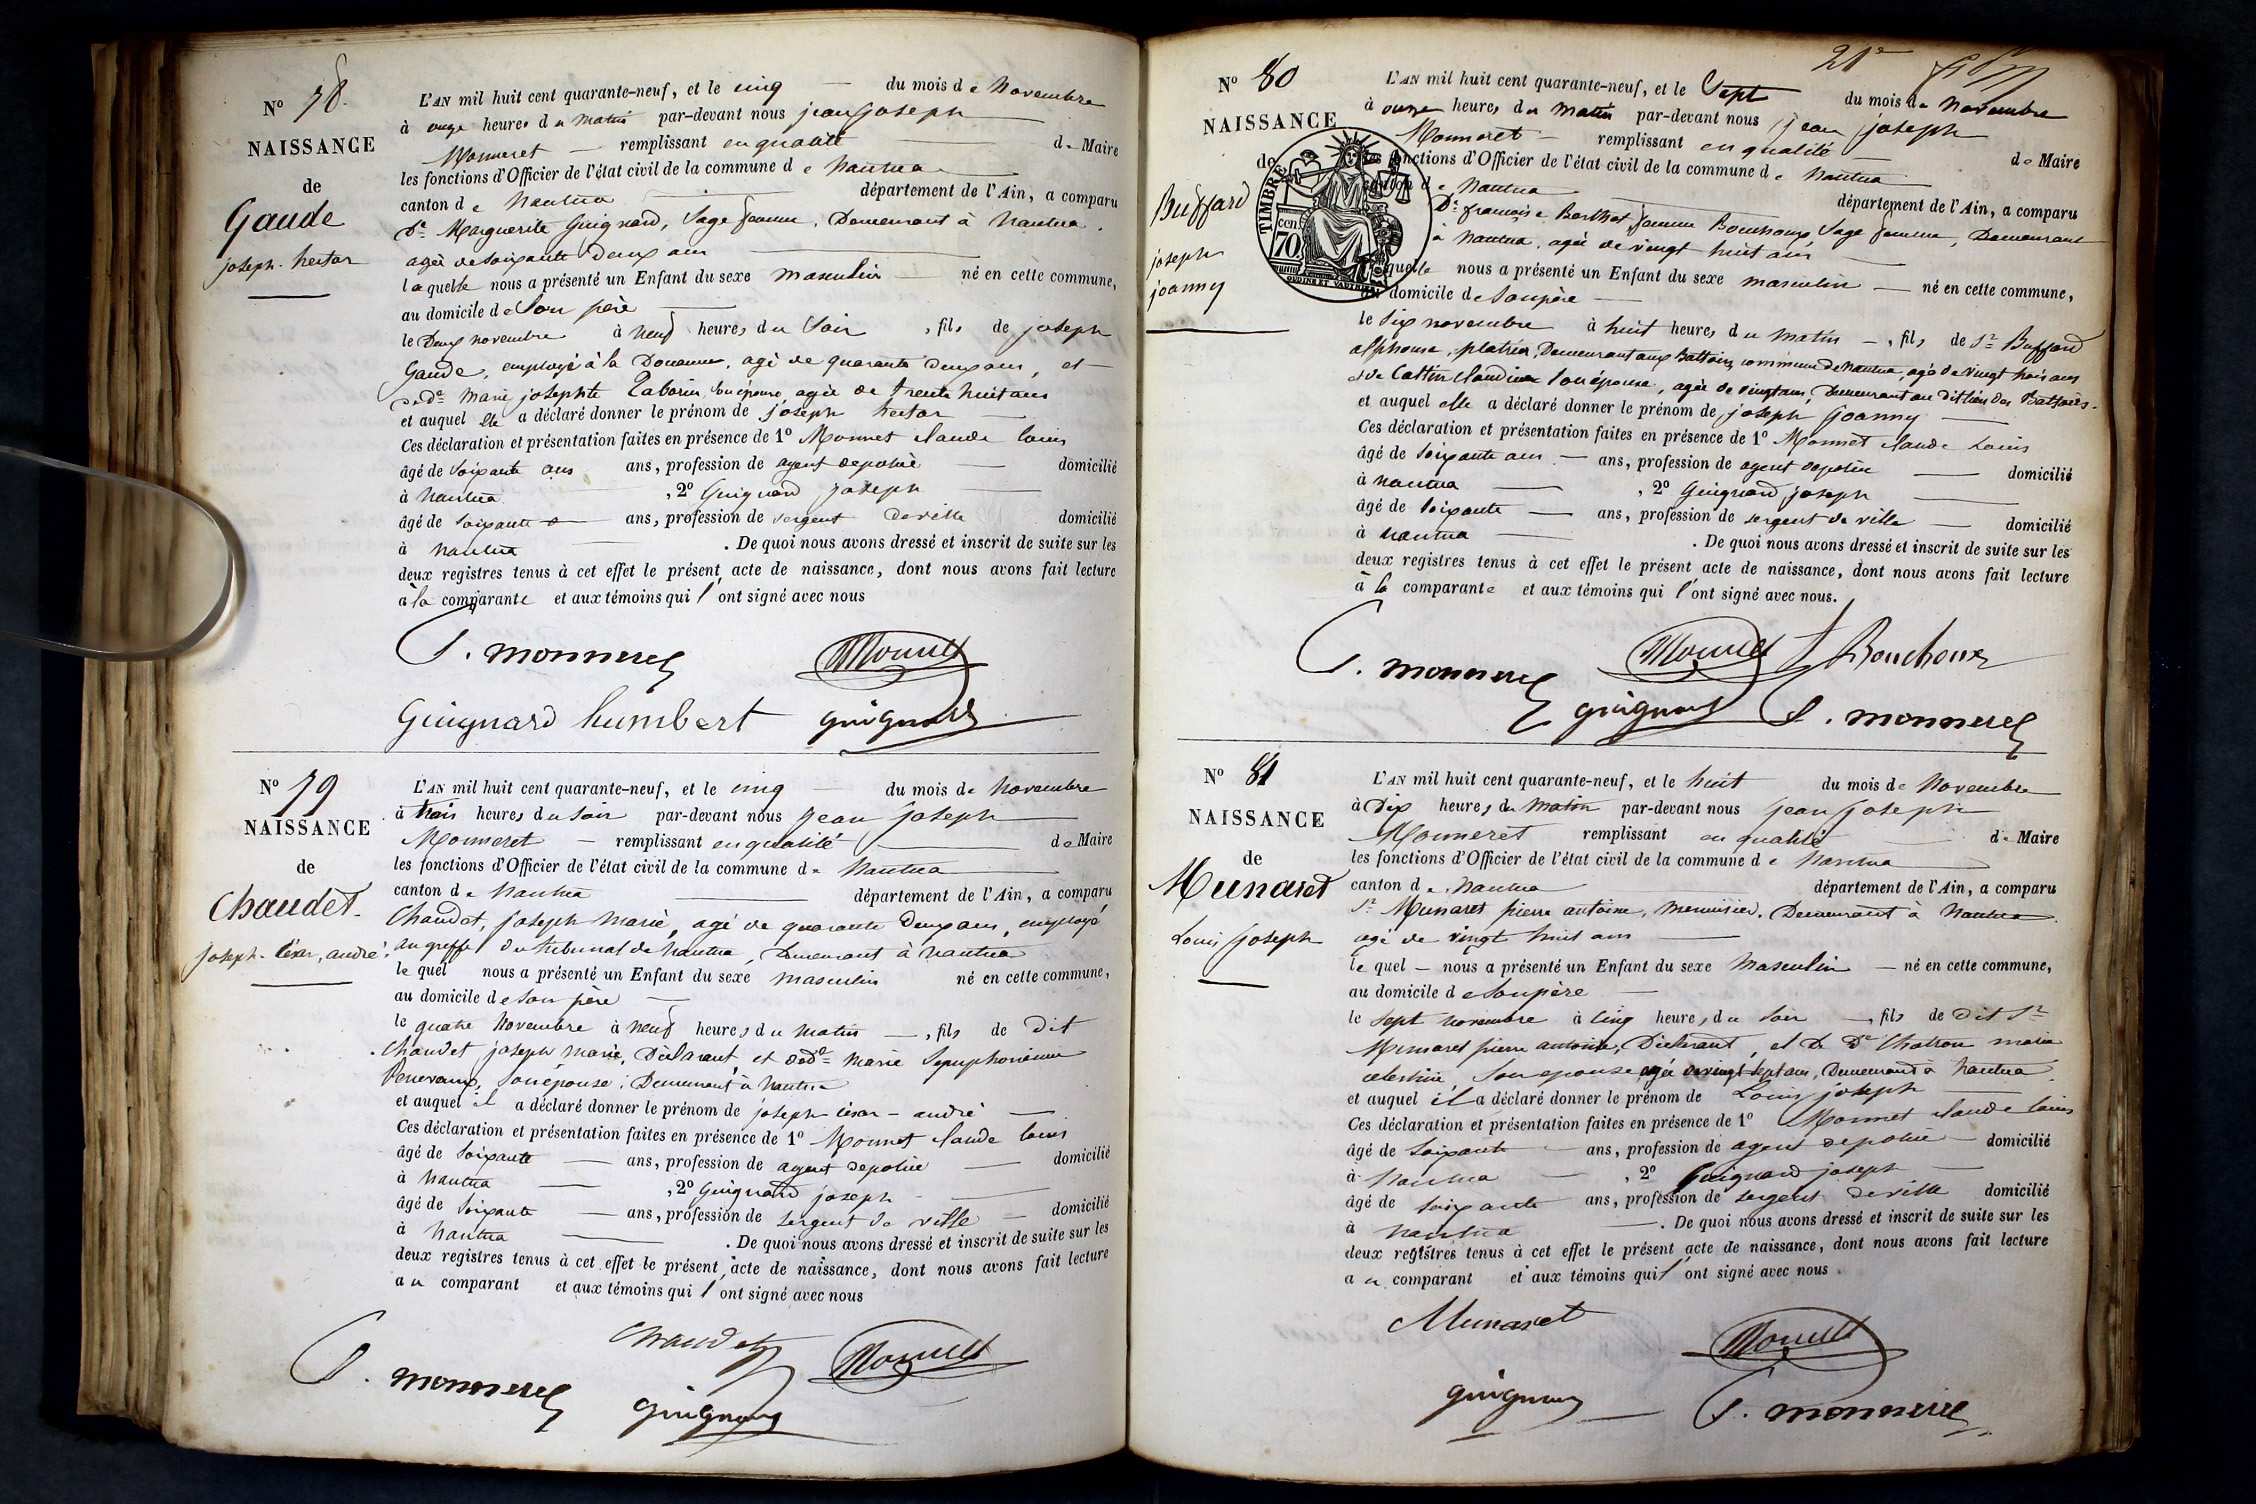 N° 78.
NAISSANCE
de
Gaude
joseph-hector
L'AN mil huit cent quarante-neuf, et le cinq — du mois de Novembre
à onze heures du matin par-devant nous jean joseph
Monneret — remplissant en qualité de Maire
les fonctions d'Officier de l'état civil de la commune de Nantua
canton de Nantua département de l'Ain, a comparu
De Marguerite Guignard, Sage femme, Demeurant à Nantua,
agée de soixante Deux ans
laquelle nous a présenté un Enfant du sexe masculin né en cette commune,
au domicile de Son père
le Deux novembre à neuf heures du Soir, fils de joseph
Gaude, employé à la Douanne, agé de quarante deux ans, et
de De Marie josephte son épouse, agée de trente huit ans
et auquel elle a déclaré donner le prénom de joseph hector
Ces déclaration et présentation faites en présence de 1° Monnet claude louis
âgé de soixante ans ans, profession de agent de police — domicilié
à Nantua, 2° Guignard joseph
âgé de soixante ans, profession de sergent de ville domicilié
à Nantua . De quoi nous avons dressé et inscrit de suite sur les
deux registres tenus à cet effet le présent acte de naissance, dont nous avons fait lecture
à la comparante et aux témoins qui l'ont signé avec nous
J. monneret
Monnet
Guignard humbert
guignard
N° 79
NAISSANCE
de
Chaudet.
joseph-César, andré.
L'AN mil huit cent quarante-neuf, et le cinq du mois de Novembre
à trois heures du soir par-devant nous jean joseph
Monneret — remplissant en qualité de Maire
les fonctions d'Officier de l'état civil de la commune de Nantua
canton de Nantua département de l'Ain, a comparu
Chaudet, joseph Marie, agé de quarante Deux ans, employé
au greffe du tribunal de Nantua, Demeurant à Nantua
le quel nous a présenté un Enfant du sexe masculin né en cette commune,
au domicile de son père
le quatre Novembre à neuf heures du matin —, fils de Dit
Chaudet joseph marie, Déclarant, et de De Marie
son épouse, Demeurant à Nantua
et auquel il a déclaré donner le prénom de joseph césar — andré —
Ces déclaration et présentation faites en présence de 1° Monnet claude louis
âgé de soixante — ans, profession de agent de police — domicilié
à Nantua —, 2° Guignard joseph
âgé de soixante — ans, profession de sergent de ville — domicilié
à Nantua . De quoi nous avons dressé et inscrit de suite sur les
deux registres tenus à cet effet le présent acte de naissance, dont nous avons fait lecture
au comparant et aux témoins qui l'ont signé avec nous
Chaudet
Monnet
J. monneret
guignard
21e
N° 80
NAISSANCE
de
Buffard
joseph
joanny
TIMBRE
70 cent.
L'AN mil huit cent quarante-neuf, et le Sept du mois de Novembre
à onze heures du matin par-devant nous jean joseph
Monneret — remplissant en qualité de Maire
les fonctions d'Officier de l'état civil de la commune de Nantua
canton de Nantua département de l'Ain, a comparu
De françoise Berthet femme Bouchoux Sage femme, Demeurant
à Nantua, agée de vingt huit ans
laquelle nous a présenté un Enfant du sexe masculin — né en cette commune,
au domicile de son père —
le six novembre à huit heures du matin —, fils de Sr Buffard
alphonse, platrier, Demeurant aux Battoirs, commune de Nantua, agé de vingt trois ans
et de Cattin Claudine son épouse, agée de vingt ans, Demeurant au dit lieu des Battoirs.
et auquel elle a déclaré donner le prénom de joseph joanny
Ces déclaration et présentation faites en présence de 1° Monnet claude Louis
âgé de soixante ans — ans, profession de agent de police — domicilié
à Nantua —, 2° Guignard joseph
âgé de soixante — ans, profession de sergent de ville — domicilié
à Nantua — . De quoi nous avons dressé et inscrit de suite sur les
deux registres tenus à cet effet le présent acte de naissance, dont nous avons fait lecture
à la comparante et aux témoins qui l'ont signé avec nous.
Monnet
f Bouchoux
J. monneret
guignard
J. monneret
N° 81
NAISSANCE
de
Munaret
Louis joseph
L'AN mil huit cent quarante-neuf, et le huit du mois de Novembre
à Dix heures du matin par-devant nous jean joseph
Monneret remplissant en qualité de Maire
les fonctions d'Officier de l'état civil de la commune de Nantua
canton de Nantua département de l'Ain, a comparu
Sr Munaret pierre antoine, menuisier, Demeurant à Nantua
agé de vingt huit ans
le quel — nous a présenté un Enfant du sexe Masculin — né en cette commune,
au domicile de son père —
le sept novembre à cinq heures du soir —, fils de Dit Sr
Munaret pierre antoine, Déclarant, et De De Chatron marie
celestine, Son epouse agée de vingt sept ans, Demeurant à Nantua,
et auquel il a déclaré donner le prénom de Louis joseph
Ces déclaration et présentation faites en présence de 1° Monnet claude louis
âgé de soixante — ans, profession de agent de police — domicilié
à Nantua —, 2° Guignard joseph
âgé de soixante ans, profession de sergent de ville domicilié
à Nantua — . De quoi nous avons dressé et inscrit de suite sur les
deux registres tenus à cet effet le présent acte de naissance, dont nous avons fait lecture
au comparant et aux témoins qui l'ont signé avec nous.
Munaret
Monnet
guignard
J. monneret